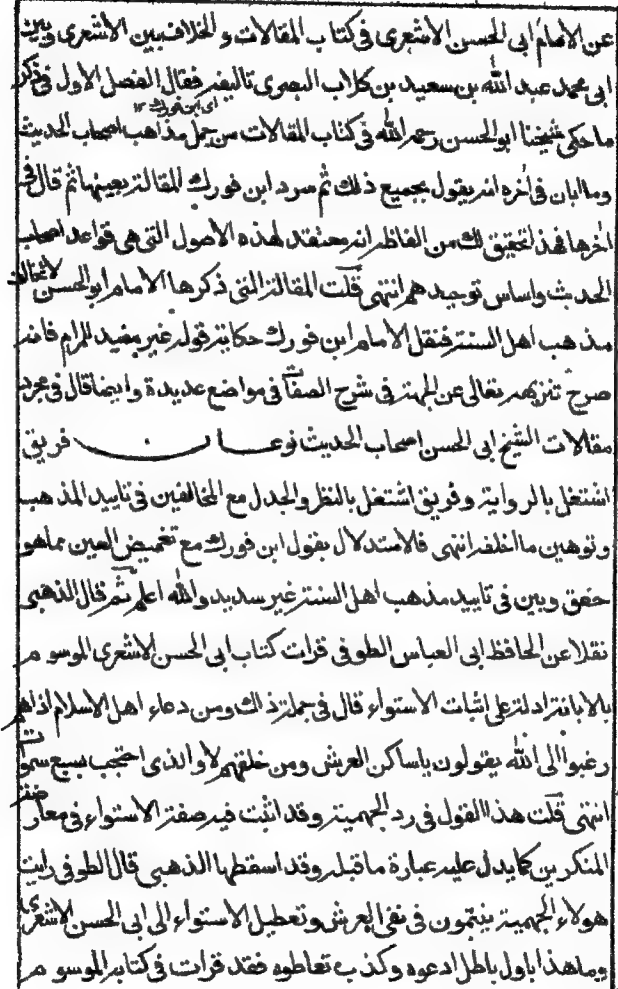 عن الامام ابى الحسن الاشعرى فى كتاب المقالات و الخلاف بين الاشعرى و بين
ابى محمد عبد الله بن سعيد بن كلاب البصرى تاليفه فقال الفصل الاول فى ذكر
اى ابن فورك ١٢
ما حكى شيخنا ابو الحسن رحمه الله فى كتاب المقالات من جمل مذاهب اصحاب الحديث
وما ابان فى اخره انه يقول بجميع ذلك ثم سرد ابن فورك المقالة بعينها ثم قال فى
اخرها فهذا تحقيق لك من الفاظه انه معتقد لهذه الاصول التى هى قواعد اصحاب
الحديث واساس توحيدهم انتهى قلت المقالة التى ذكرها الامام ابو الحسن لا تخالف
مذهب اهل السنة فنقل الامام ابن فورك حكاية قوله غير مفيد للمرام فانه
صرح تنزيهه تعالى عن الجهة فى شرح الصفات فى مواضع عديدة وايضا قال فى مجرد
مقالات الشيخ ابى الحسن اصحاب الحديث نوعان فريق
اشتغل بالرواية و فريق اشتغل بالنظر والجدل مع المخالفين فى تاييد المذهب
وتوهين ما خالفه انتهى فالاستدلال بقول ابن فورك مع تغميض العين مما هو
حقق وبين فى تاييد مذهب اهل السنة غير سديد والله اعلم ثم قال الذهبى
نقلا عن الحافظ ابى العباس الطوفى قرات كتاب ابى الحسن الاشعرى الموسوم
بالابانة ادلة على اثبات الاستواء قال فى جملة ذلك ومن دعاء اهل الاسلام اذا هم
رغبوا الى الله يقولون يا ساكن العرش ومن خلقهم لا والذى احتجب بسبع سموات
انتهى قلت هذا القول فى رد الجهمية وقد اثبت فيه صفة الاستواء فى معارضة
المنكرين كما يدل عليه عبارة ما قبله وقد اسقطها الذهبى قال الطوفى رايت
هولاء الجهمية ينتمون فى نفى العرش و تعطيل الاستواء الى ابى الحسن الاشعرى
وما هذا باول باطل ادعوه وكذب تعاطوه فقد قرات فى كتابه الموسوم